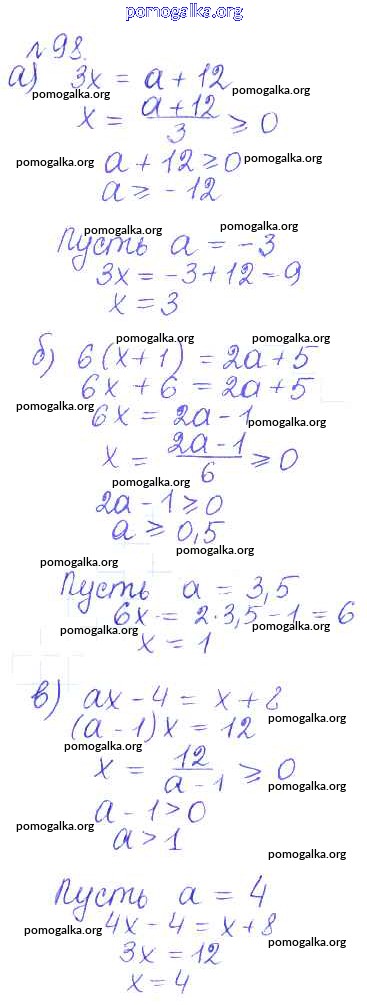 pomogalka.org
№98.
а) 3x = a + 12
pomogalka.org pomogalka.org
x = a + 12 / 3 ⩾ 0
pomogalka.org a + 12 ⩾ 0 pomogalka.org
a ⩾ - 12
pomogalka.org pomogalka.org
Пусть a = -3
3x = -3 + 12 = 9
x = 3
pomogalka.org pomogalka.org
б) 6(x + 1) = 2a + 5
6x + 6 = 2a + 5
pomogalka.org
6x = 2a - 1
pomogalka.org
x = 2a - 1 / 6 ⩾ 0
pomogalka.org
2a - 1 ⩾ 0
a ⩾ 0,5
pomogalka.org
pomogalka.org
Пусть a = 3,5
6x = 2·3,5 - 1 = 6
pomogalka.org pomogalka.org
x = 1
pomogalka.org
в) ax - 4 = x + 8
pomogalka.org
(a - 1)x = 12
pomogalka.org
x = 12 / a - 1 ⩾ 0
pomogalka.org
a - 1 > 0
pomogalka.org
a > 1
pomogalka.org
pomogalka.org
Пусть a = 4
4x - 4 = x + 8
pomogalka.org pomogalka.org
3x = 12
x = 4